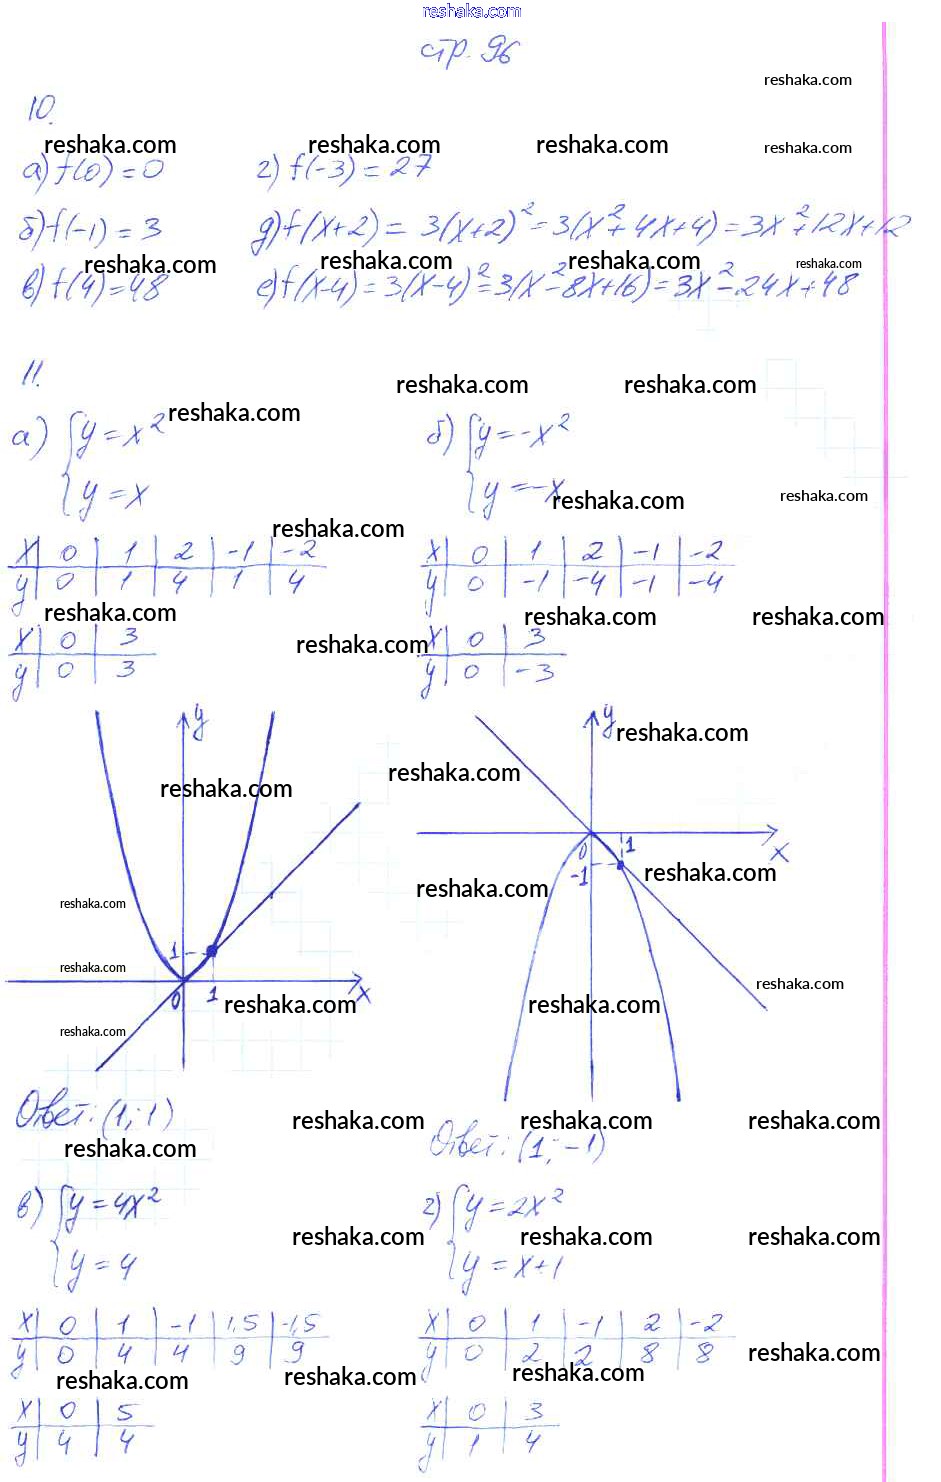 reshaka.com
стр. 96
reshaka.com
10.
reshaka.com reshaka.com reshaka.com reshaka.com
а) f(0) = 0 г) f(-3) = 27
б) f(-1) = 3 д) f(x+2) = 3(x+2)² = 3(x²+4x+4) = 3x²+12x+12
reshaka.com reshaka.com reshaka.com reshaka.com
в) f(4) = 48 е) f(x-4) = 3(x-4)² = 3(x²-8x+16) = 3x²-24x+48
11.
reshaka.com reshaka.com
reshaka.com
а) { y = x² б) { y = -x²
y = x y = -x
reshaka.com reshaka.com
reshaka.com
x | 0 | 1 | 2 | -1 | -2 x | 0 | 1 | 2 | -1 | -2
y | 0 | 1 | 4 | 1 | 4 y | 0 | -1 | -4 | -1 | -4
reshaka.com reshaka.com reshaka.com
x | 0 | 3 reshaka.com x | 0 | 3
y | 0 | 3 y | 0 | -3
y y
reshaka.com
reshaka.com reshaka.com
0 1 x
-1
reshaka.com reshaka.com
reshaka.com
1
reshaka.com reshaka.com
0 1 x
reshaka.com reshaka.com
reshaka.com
Ответ: (1; 1)
reshaka.com reshaka.com reshaka.com
Ответ: (1; -1)
reshaka.com
в) { y = 4x² г) { y = 2x²
reshaka.com reshaka.com reshaka.com
y = 4 y = x+1
x | 0 | 1 | -1 | 1,5 | -1,5 x | 0 | 1 | -1 | 2 | -2
y | 0 | 4 | 4 | 9 | 9 y | 0 | 2 | 2 | 8 | 8
reshaka.com
reshaka.com reshaka.com reshaka.com
x | 0 | 5 x | 0 | 3
y | 4 | 4 y | 1 | 4